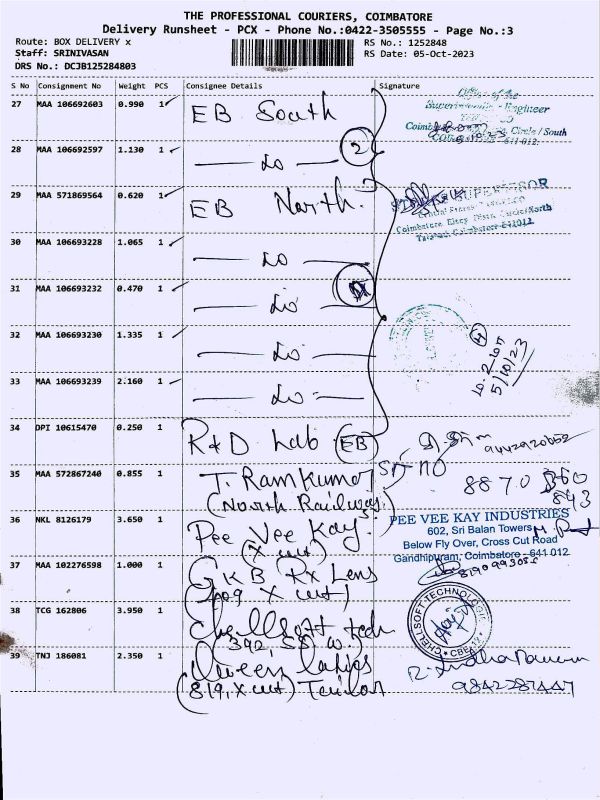 THE PROFESSIONAL COURIERS, COIMBATORE
Delivery Runsheet - PCX - Phone No.:0422-3505555 - Page No.:3
Route: BOX DELIVERY x
RS No.: 1252848
Staff: SRINIVASAN
RS Date: 05-Oct-2023
DRS No.: DCJB125284803
S No Consignment No Weight PCS Consignee Details Signature
27 MAA 106692603 0.990 1 EB South
Superintending Engineer
Circle/South
641 012.
28 MAA 106692597 1.130 1 Do 2
29 MAA 571869564 0.620 1 EB North.
SUPERVISOR
Coimbatore Elecy Distn. Circle/North
Tatabad, Coimbatore-641012
30 MAA 106693228 1.065 1 Do
31 MAA 106693232 0.470 1 Do
32 MAA 106693230 1.335 1 Do
4
5/10/23
33 MAA 106693239 2.160 1 Do
34 DPI 10615470 0.250 1 R&D Lab (EB)
9442920652
35 MAA 572867240 0.855 1 T. Ramkumar
(North Railways)
8870
36 NKL 8126179 3.650 1 Pee Vee Kay.
(X cut)
PEE VEE KAY INDUSTRIES
602, Sri Balan Towers
Below Fly Over, Cross Cut Road
Gandhipuram, Coimbatore - 641 012
37 MAA 102276598 1.000 1 GKB Rx Lens
(X cut)
38 TCG 162806 3.950 1 Chellsoft tech
(392,
CHELLSOFT TECHNOLOGIES
CBE
39 TNJ 186081 2.350 1 Queen Ladies
(819, X cut) Tailor
9842287447